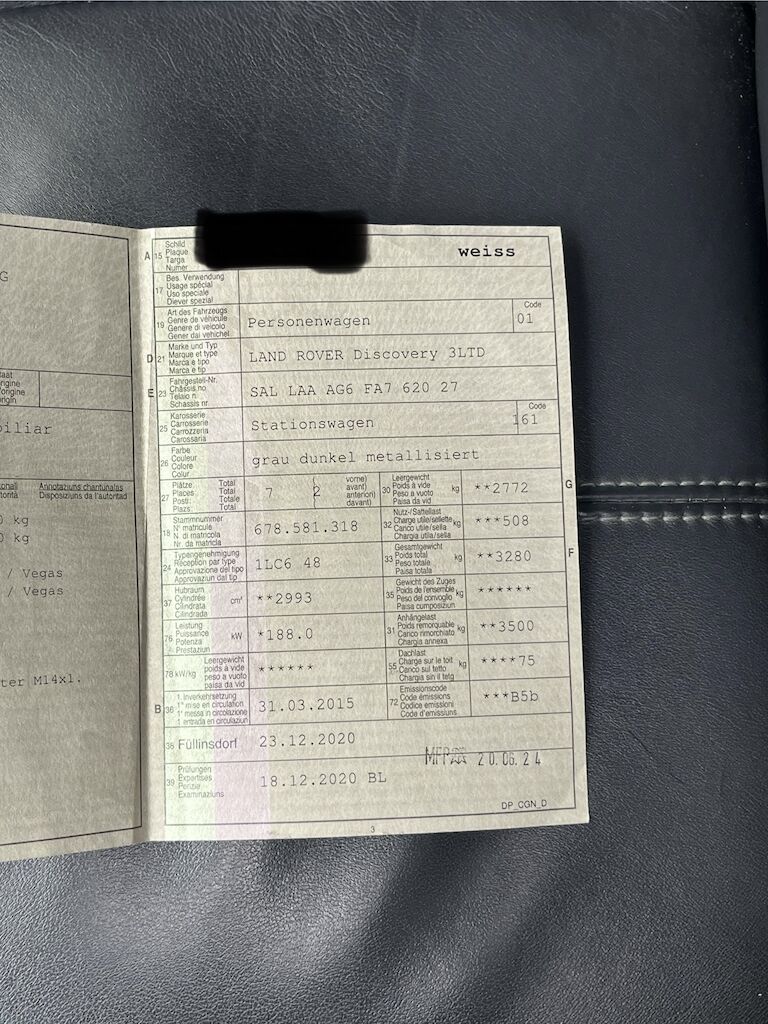 G
aat
rigine
'origine
origin
biliar
onali
torità
Annotaziuns chantunalas
Disposiziuns da l'autoritad
0 kg
0 kg
/ Vegas
/ Vegas
ter M14x1.
A 15 Schild
Plaque
Targa
Numer
weiss
17 Bes. Verwendung
Usage spécial
Uso speciale
Diever spezial
19 Art des Fahrzeugs
Genre de véhicule
Genere di veicolo
Gener dal vehichel
Personenwagen
Code
01
D 21 Marke und Typ
Marque et type
Marca e tipo
Marca e tip
LAND ROVER Discovery 3LTD
E 23 Fahrgestell-Nr.
Châssis no
Telaio n.
Schassis nr.
SAL LAA AG6 FA7 620 27
25 Karosserie
Carrosserie
Carrozzeria
Carossaria
Stationswagen
Code
161
26 Farbe
Couleur
Colore
Colur
grau dunkel metallisiert
27 Plätze: Total
Places: Total
Posti: Totale
Plazs: Total
7 ( 2 vorne)
avant)
anteriori)
davant)
30 Leergewicht
Poids à vide
Peso a vuoto
Paisa da vid
kg
**2772
G
18 Stammnummer
N° matricule
N. di matricola
Nr. da matricla
678.581.318
32 Nutz-/Sattellast
Charge utile/sellette
Carico utile/sella
Chargia utila/sella
kg
***508
24 Typengenehmigung
Réception par type
Approvazione del tipo
Approvaziun dal tip
1LC6 48
33 Gesamtgewicht
Poids total
Peso totale
Paisa totala
kg
**3280
F
37 Hubraum
Cylindrée
Cilindrata
Cilindrada
cm³
**2993
35 Gewicht des Zuges
Poids de l'ensemble
Peso del convoglio
Paisa cumposiziun
kg
******
76 Leistung
Puissance
Potenza
Prestaziun
kW
*188.0
31 Anhängelast
Poids remorquable
Carico rimorchiato
Chargia annexa
kg
**3500
78 kW/kg Leergewicht
poids à vide
peso a vuoto
paisa da vid
******
55 Dachlast
Charge sur le toit
Carico sul tetto
Chargia sin il tetg
kg
****75
B 36 1. Inverkehrsetzung
1re mise en circulation
1a messa in circolazione
1. entrada en circulaziun
31.03.2015
72 Emissionscode
Code émissions
Codice emissioni
Code d'emissiuns
***B5b
38 Füllinsdorf 23.12.2020
MFP 20.06.24
39 Prüfungen
Expertises
Perizie
Examinaziuns
18.12.2020 BL
DP_CGN_D
3